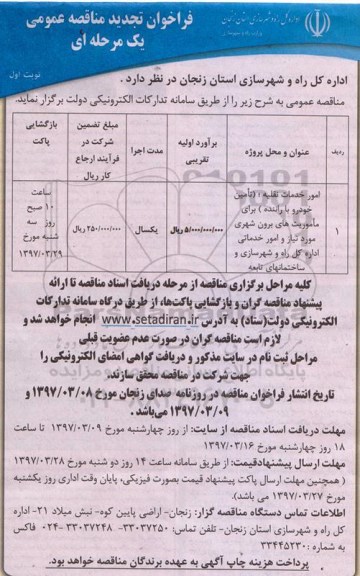 اداره کل راه و شهرسازی استان زنجان
فراخوان تجدید مناقصه عمومی
یک مرحله ای
نوبت اول
اداره کل راه و شهرسازی استان زنجان در نظر دارد .
مناقصه عمومی به شرح زیر را از طریق سامانه تدارکات الکترونیکی دولت برگزار نماید.
ردیف
عنوان و محل پروژه
برآورد اولیه تقریبی
مدت اجرا
مبلغ تضمین شرکت در فرآیند ارجاع کار ریال
بازگشایی پاکت
۱
امور خدمات نقلیه : (تأمین
خودرو با راننده ) برای
مأموریت های برون شهری
مورد نیاز و امور خدماتی
اداره کل راه و شهرسازی و
ساختمانهای تابعه
۵/۰۰۰/۰۰۰/۰۰۰ ریال
یکسال
۲۵۰/۰۰۰/۰۰۰ ریال
ساعت
۱۰ صبح
روز سه
شنبه مورخ
۱۳۹۷/۰۳/۲۹
کلیه مراحل برگزاری مناقصه از مرحله دریافت اسناد مناقصه تا ارائه
پیشنهاد مناقصه گران و بازگشایی پاکت‌ها، از طریق درگاه سامانه تدارکات
الکترونیکی دولت(ستاد) به آدرس www.setadiran.ir انجام خواهد شد و
لازم است مناقصه گران در صورت عدم عضویت قبلی
مراحل ثبت نام در سایت مذکور و دریافت گواهی امضای الکترونیکی را
جهت شرکت در مناقصه محقق سازند.
تاریخ انتشار فراخوان مناقصه در روزنامه صدای زنجان مورخ ۱۳۹۷/۰۳/۰۸ و
۱۳۹۷/۰۳/۰۹ می‌باشد .
مهلت دریافت اسناد مناقصه از سایت: از روز چهارشنبه مورخ ۱۳۹۷/۰۳/۰۹ تا ساعت
۱۸ روز چهارشنبه مورخ ۱۳۹۷/۰۳/۱۶
مهلت ارسال پیشنهادقیمت: از طریق سامانه ساعت ۱۴ روز دو شنبه مورخ ۱۳۹۷/۰۳/۲۸
( همچنین مهلت ارسال پاکت پیشنهاد قیمت بصورت فیزیکی، پایان وقت اداری روز یکشنبه
مورخ ۱۳۹۷/۰۳/۲۷ می باشد).
اطلاعات تماس دستگاه مناقصه گزار: زنجان- اراضی پایین کوه- نبش میلاد ۲۱- اداره
کل راه و شهرسازی استان زنجان- تلفن تماس: ۳۳۰۳۷۲۵۰- ۳۳۰۳۷۲۴۸-۰۲۴ فاکس
به شماره : ۳۳۴۴۵۲۳۰
پرداخت هزینه چاپ آگهی به عهده برندگان مناقصه خواهد بود.